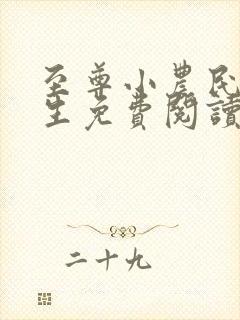 至尊小農民
生免費閱讀
二十九